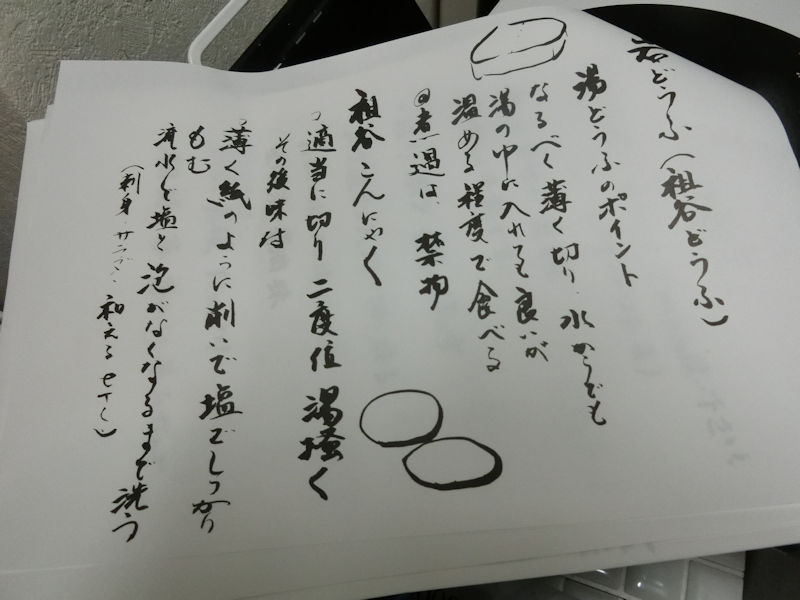 岩どうふ(祖谷どうふ)
湯どうふのポイント
なるべく薄く切り、水からでも
湯の中に入れても良いが
温める程度で食べる
◎煮過は、禁物
祖谷こんにゃく
適当に切り 二度位 湯掻く
その後味付
薄く紙のように削いで塩でしっかり
もむ
流水で塩と泡がなくなるまで洗う
(刺身 サラダ 和える